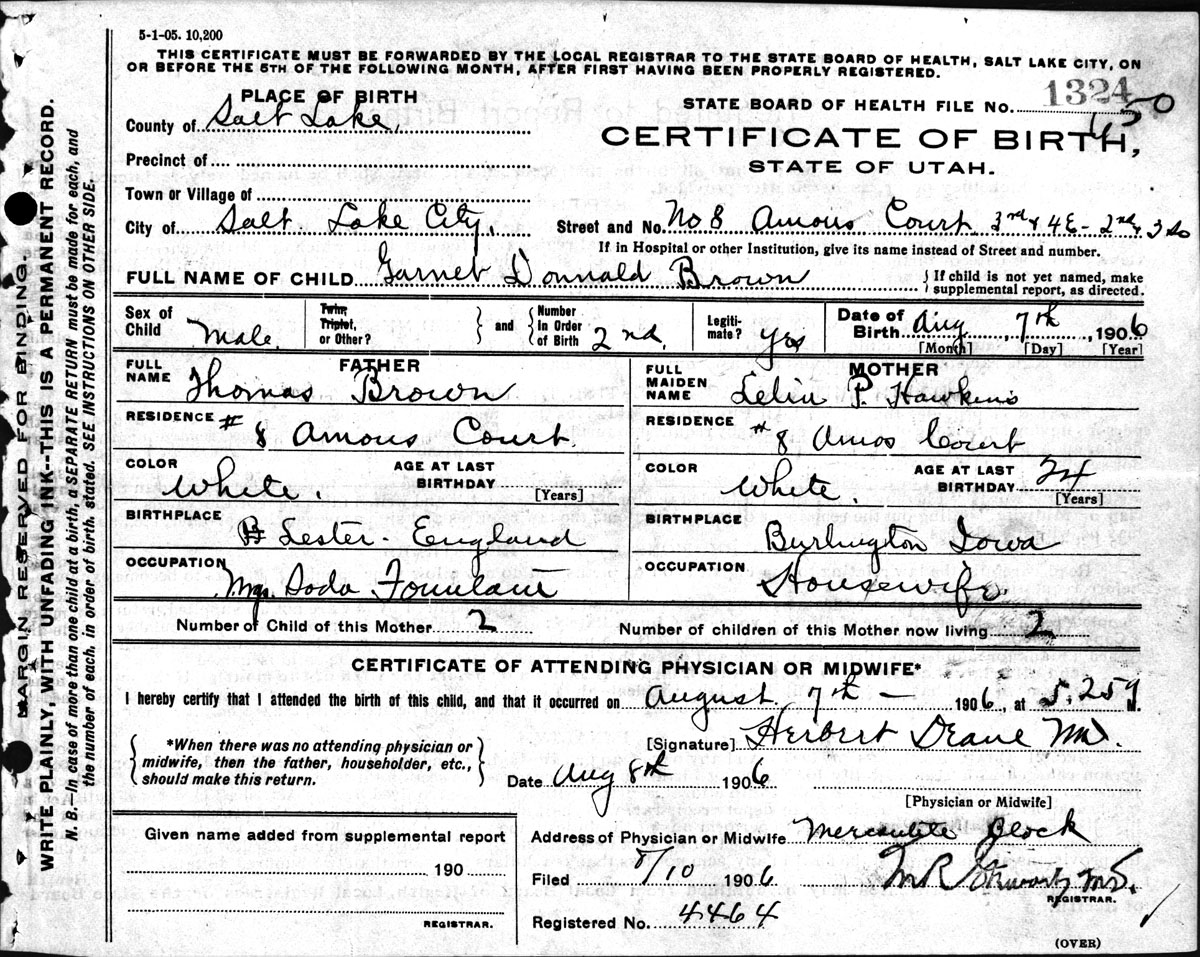 5-1-05. 10,200
THIS CERTIFICATE MUST BE FORWARDED BY THE LOCAL REGISTRAR TO THE STATE BOARD OF HEALTH, SALT LAKE CITY, ON
OR BEFORE THE 5TH OF THE FOLLOWING MONTH, AFTER FIRST HAVING BEEN PROPERLY REGISTERED.
MARGIN RESERVED FOR BINDING.
WRITE PLAINLY, WITH UNFADING INK--THIS IS A PERMANENT RECORD.
N. B.—In case of more than one child at a birth, a SEPARATE RETURN must be made for each, and
the number of each, in order of birth, stated. SEE INSTRUCTIONS ON OTHER SIDE.
PLACE OF BIRTH
County of Salt Lake,
Precinct of
Town or Village of
City of Salt Lake City.
STATE BOARD OF HEALTH FILE NO. 1324
CERTIFICATE OF BIRTH,
STATE OF UTAH.
Street and No. No 8 Amous Court 3rd & 4E - 2nd & 3 So
If in Hospital or other Institution, give its name instead of Street and number.
FULL NAME OF CHILD Garnet Donnald Brown
If child is not yet named, make
supplemental report, as directed.
Sex of Child Male.
Twin, Triplet, or Other?
and
Number In Order of Birth 2nd.
Legiti-mate? Yes
Date of Birth Aug 7th, 1906
[Month] [Day] [Year]
FATHER
FULL NAME Thomas Brown
RESIDENCE # 8 Amous Court.
COLOR White.
AGE AT LAST BIRTHDAY
[Years]
BIRTHPLACE Lester - England
OCCUPATION Mgr. Soda Fountain
MOTHER
FULL MAIDEN NAME Lelia P. Hawkins
RESIDENCE # 8 Amos Court
COLOR White.
AGE AT LAST BIRTHDAY 24
[Years]
BIRTHPLACE Burlington Iowa
OCCUPATION Housewife.
Number of Child of this Mother 2
Number of children of this Mother now living 2
CERTIFICATE OF ATTENDING PHYSICIAN OR MIDWIFE*
I hereby certify that I attended the birth of this child, and that it occurred on August 7th - 1906, at 5.25 M.
*When there was no attending physician or
midwife, then the father, householder, etc.,
should make this return.
[Signature] Herbert Deane MD.
Date Aug 8th 1906
[Physician or Midwife]
Given name added from supplemental report
190
REGISTRAR.
Address of Physician or Midwife Mercantile Block
Filed 8/10 1906
REGISTRAR.
Registered No. 4464
(OVER)